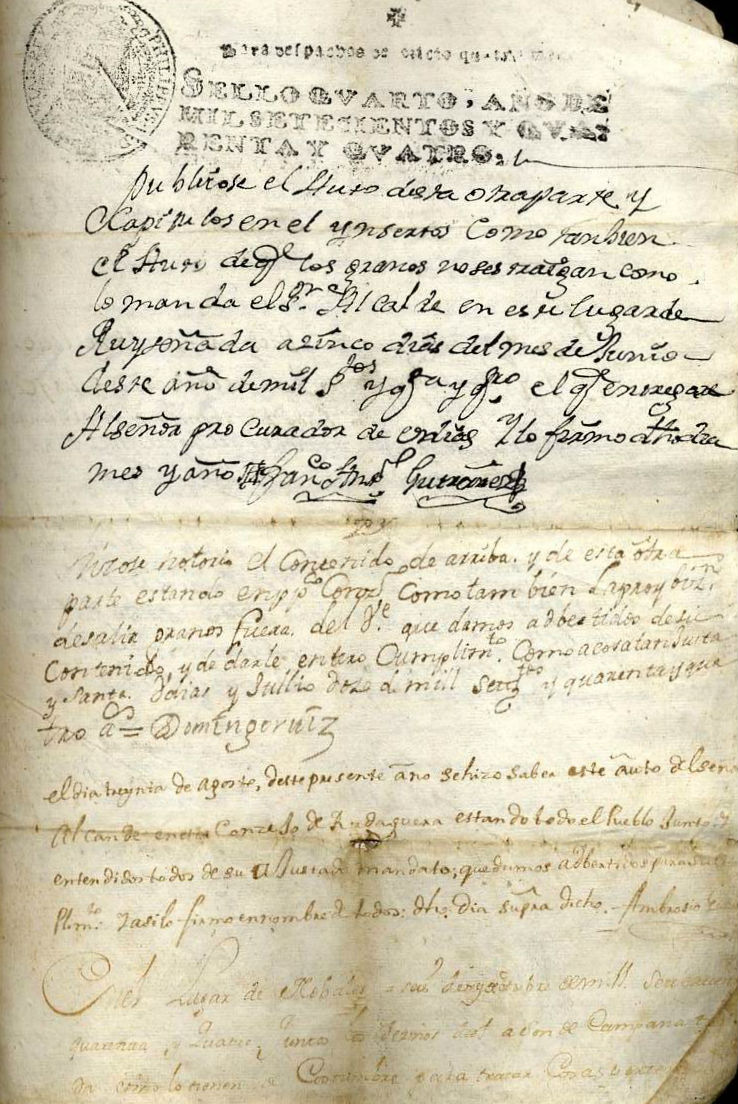 PHILIPPVS
Para despachos de oficio quatro mrs
SELLO QVARTO, AÑO DE
MIL SETECIENTOS Y QVA-
RENTA Y QVATRO.
Publicose el Auto desta otra parte y
Capitulos en el ynsertos Como tanbien
el Auto de q^e los granos no se estraigan como
lo manda el S^r Alcalde en este lugar de
Ruyseñada a zinco dias del mes de Junio
deste año de mil s^tos y q^ta y q^tro el q^e entregare
Al señor procurador de y lo firmo dho dia
mes y año Fran^co Ant^o Gutierrez
Hizose notorio el Contenido de arriba. y de esta otra
parte estando en pp^co Conz^o Como tambien La proybiz^n
de salir granos fuera. del que damos adbertidos de su
Contenido, y de darle entero Cumplim^to. Como a cosa tan Justa
y Santa. y Jullio doze de mill setez^tos y quarenta y qua
tro a^s = Domingo ruiz
el dia treynta de agosto, deste presente año se hizo saber este auto del señor
Alcalde en este Conzejo de Rudaguera estando todo el Pueblo Junto y
entendidos todos de su Justado mandato; quedamos adbertidos para su
Plim^to Y asi lo firmo en nombre de todos: dho, dia supra dicho. - Ambrosio
En el Lugar de de mill setecientos
quarenta y Quatro, Junto los vecinos del a son de Campana
da como lo tienen de Costumbre para tratar Cosas